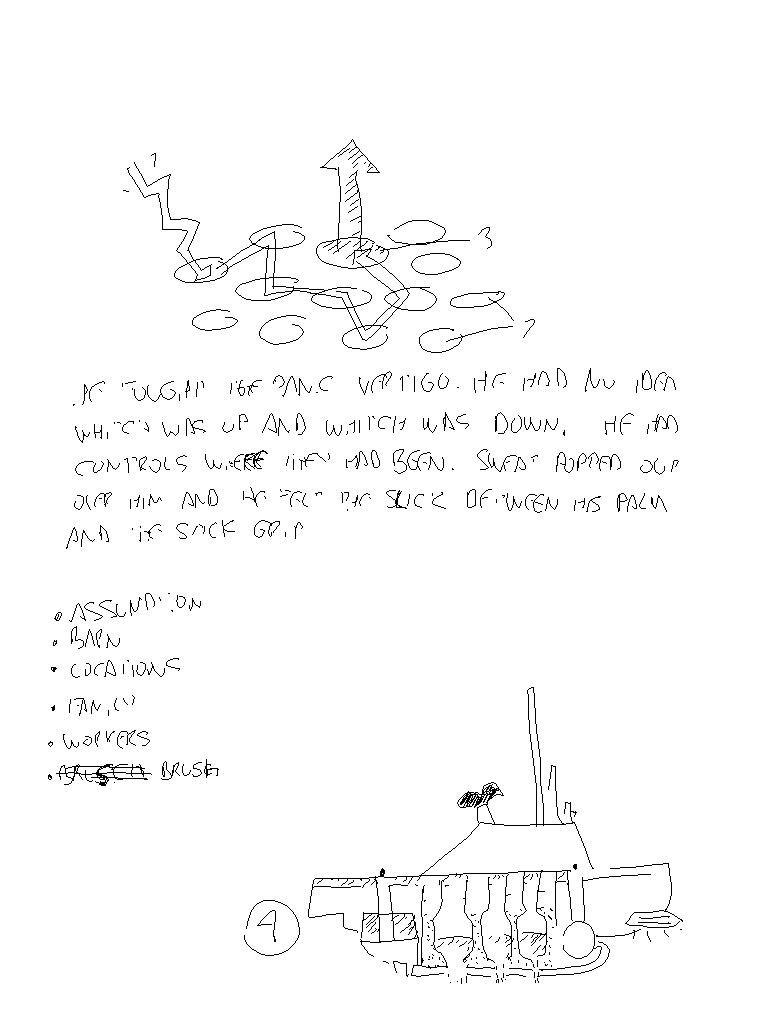 1
3
2
HE FOUGHT THE PANIC VERTIGO. HE HAD NO IDEA
WHICH WAS UP AND WHICH WAS DOWN. HE HAD
CONTROLS WHERE THEY HAD BEEN. SWEAT POPPED OUT
OVER HIM AND HE FELT THE SLICK BETWEEN HIS PALM
AND THE STICK GRIP
• BARN
• LOCATIONS
• FAMILY
• WORKERS
• BRUSH
4